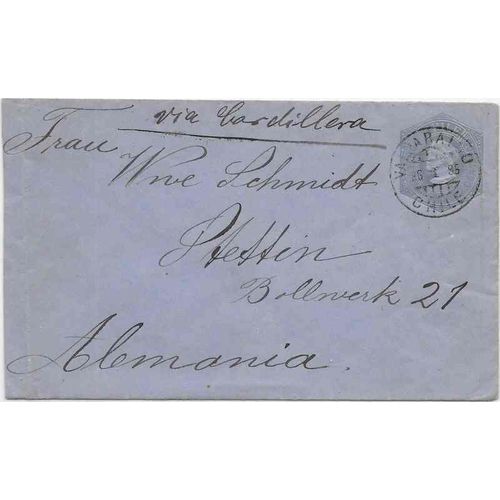 via Cordillera
Frau
Wwe Schmidt
Stettin
Bollwerk 21
Alemania.
VALPARAISO
CHILE